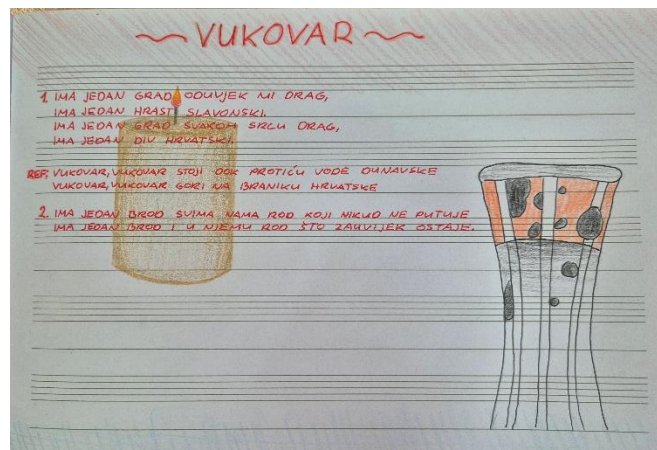 ~ VUKOVAR ~
1. IMA JEDAN GRAD ODUVJEK MI DRAG,
IMA JEDAN HRAST SLAVONSKI.
IMA JEDAN GRAD SVAKOM SRCU DRAG,
IMA JEDAN DIV HRVATSKI.
REF: VUKOVAR, VUKOVAR STOJI DOK PROTIČU VODE DUNAVSKE
VUKOVAR, VUKOVAR GORI NA BRANIKU HRVATSKE
2. IMA JEDAN BROD SVIMA NAMA ROD KOJI NIKUD NE PUTUJE
IMA JEDAN BROD I U NJEMU ROD ŠTO ZAUVIJEK OSTAJE.